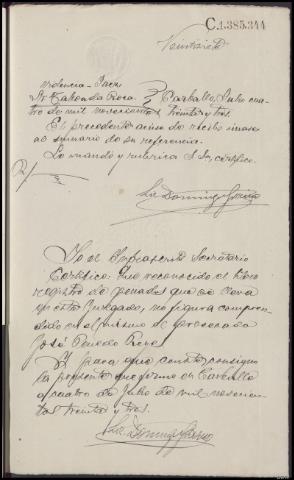 C.1.385.344
Veintisiete
Providencia-Juez
Sr Taboada Roca. Carballo, Julio cua-
tro de mil novecientos treinta y tres.
El precedente acuse de recibo únase
al sumario de su referencia.
Lo mandó y rubrica S Sª, certifico.
Luis Domingo
Yo el Infrascrito Secretario
Certifico: Que reconocido el libro
registro de penados que se lleva
en este Juzgado, no figura compren-
dido en el mismo el procesado
José Penedo
Y para que conste, consigno
la presente que firmo en Carballo
a cuatro de Julio de mil novecien-
tos treinta y tres.
Luis Domingo